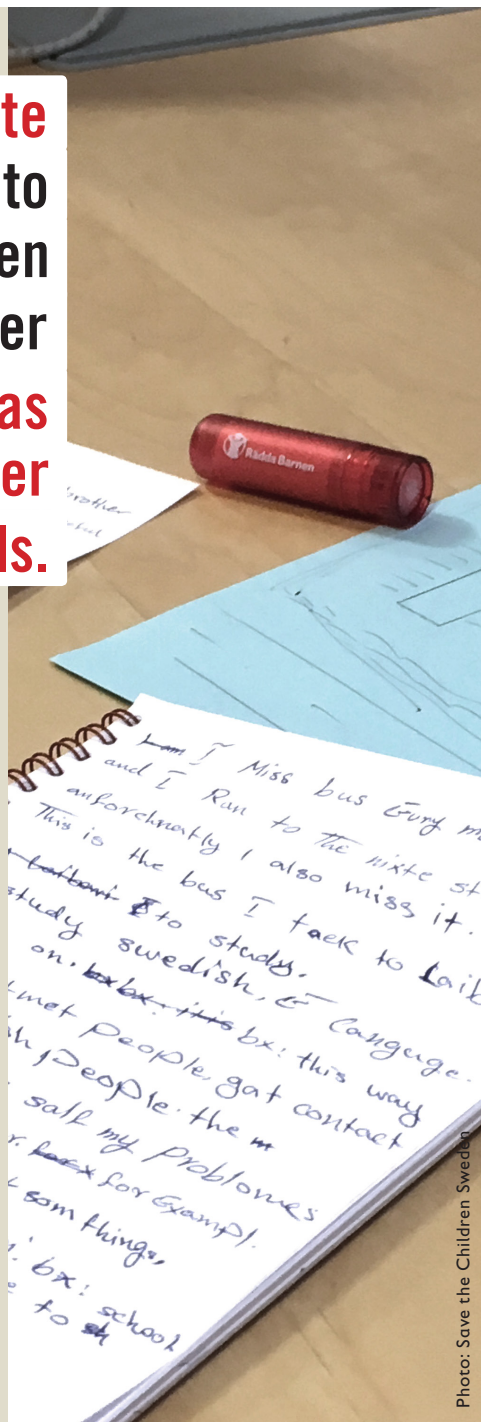 te
to
en
er
as
er
ls.
Rädda Barnen
brother
I Miss bus Gury m
and I Run to The nixte st
anforchnatly I also miss it.
This is the bus I taek to Laib
to study.
study swedish, & Languge.
on. bx: this way
met people, gat contact
sh people. the
salf my Problomes
r. for Exampl.
t som things,
bx: school
e to sh
Photo: Save the Children Sweden